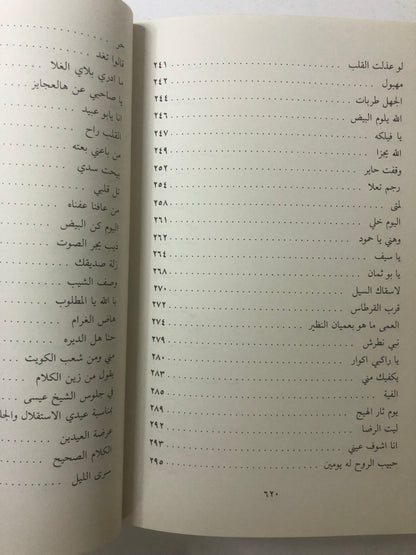 لو عذلت القلب ٢٤١
مهبول ٢٤٢
الجهل طربات ٢٤٤
الله يلوم البيض ٢٤٦
يا فيلكه ٢٤٧
الله يجزا ٢٤٩
وقفت حاير ٢٥٢
رجم تعلا ٢٥٤
لمتى ٢٥٨
اليوم خلي ٢٦١
وهني يا حمود ٢٦٢
يا سيف ٢٦٤
يا بو ثمان ٢٦٨
لاسقاك السيل ٢٧٠
قرب القرطاس ٢٧٢
العمى ما هو بعميان النظير ٢٧٤
نبي نطرش ٢٧٩
يا راكبي اكوار ٢٨٠
يكفيك مني ٢٨٣
الفية ٢٨٥
يوم ثار الهيج ٢٨٩
ليت الرضا ٢٩٢
انا اشوف عيني ٢٩٣
حبيب الروح له يومين ٢٩٥
٦٢٠
حر
قالوا تغد
ما ادري بلاي الغلا
يا صاحبي عن هالعجايز
انا يابو عبيد
القلب راح
من باعني بعته
بيحت سدي
تل قلبي
من عافنا عفناه
اليوم كن البيض
ذيب يجر الصوت
زلة صديقك
وصف الشيب
با الله يا المطلوب
هاض الغرام
حنا هل الديره
مني ومن شعب الكويت
يقول من زين الكلام
في جلوس الشيخ عيسى
بمناسبة عيدي الاستقلال والجلا
عرضة العيدين
الكلام الصحيح
سرى الليل